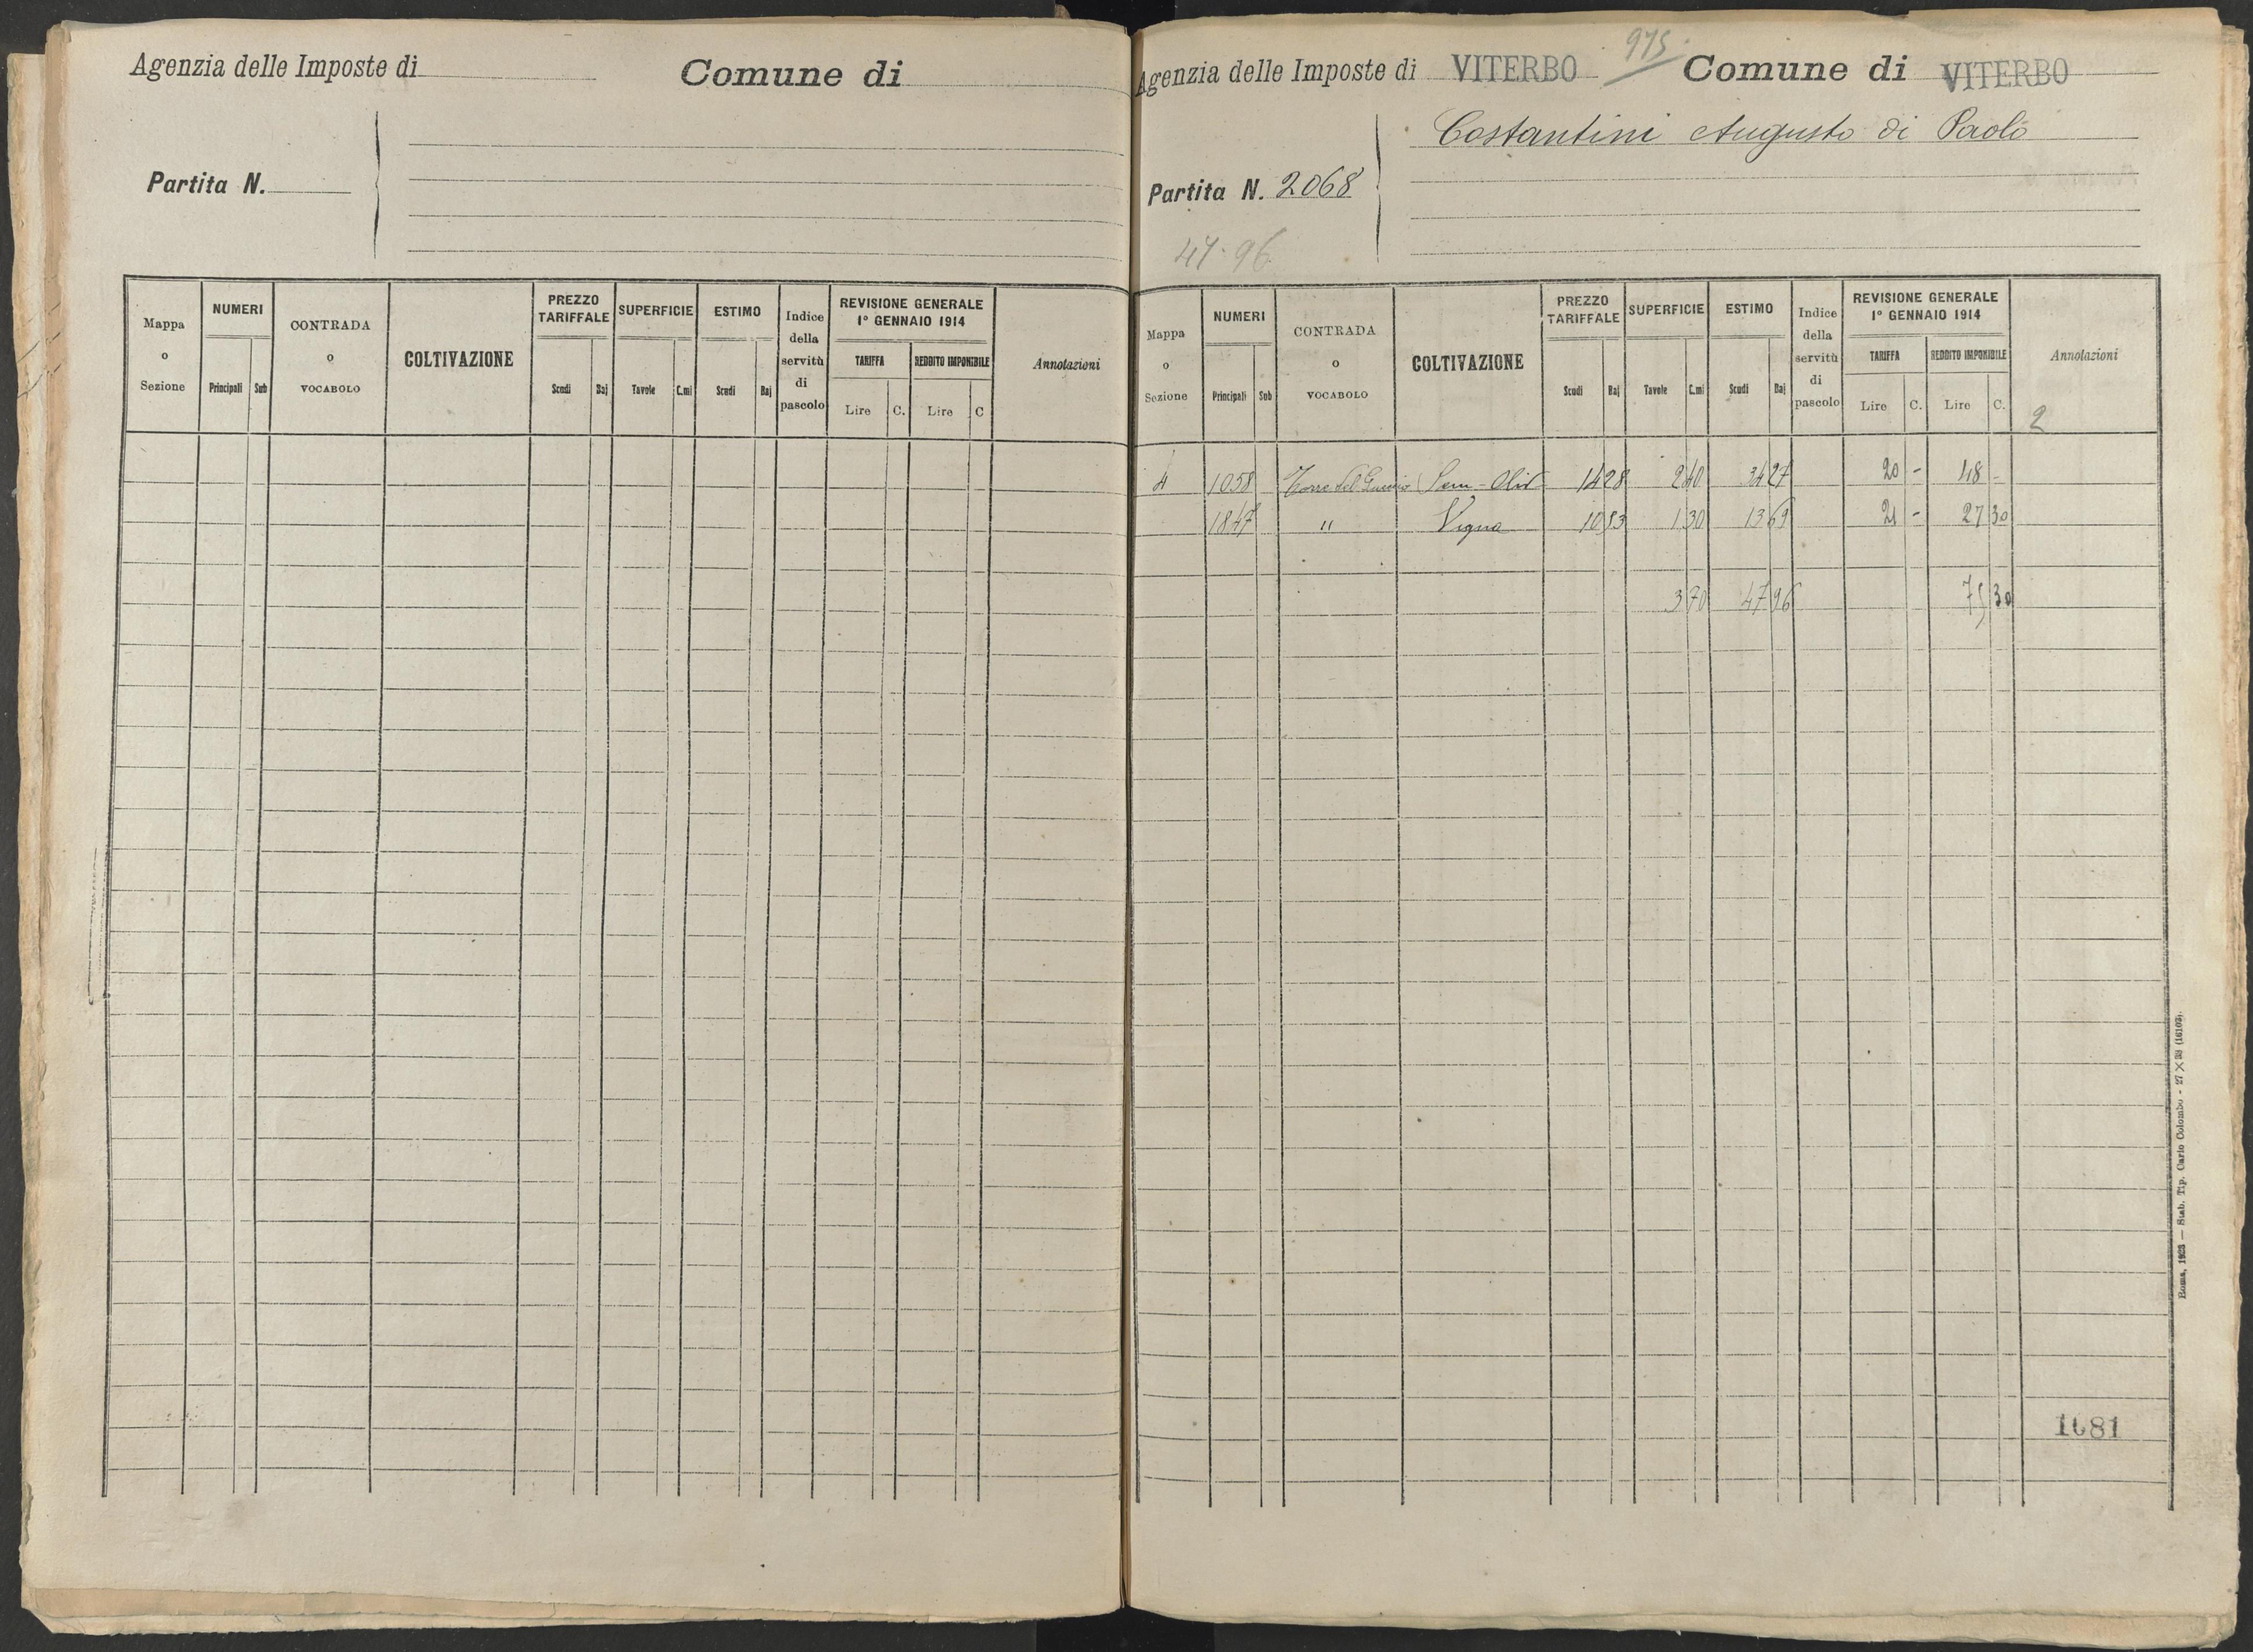 Agenzia delle Imposte di
Comune di
Partita N.
Mappa o Sezione
NUMERI
Principali Sub
CONTRADA o VOCABOLO
COLTIVAZIONE
PREZZO TARIFFALE
Scudi Baj
SUPERFICIE
Tavole C.mi
ESTIMO
Scudi Baj
Indice della servitù di pascolo
REVISIONE GENERALE
1° GENNAIO 1914
TARIFFA
Lire C.
REDDITO IMPONIBILE
Lire C
Annotazioni
975
Agenzia delle Imposte di VITERBO Comune di VITERBO
Costantini Augusto di Paolo
Partita N. 2068
47.96
Mappa o Sezione
NUMERI
Principali Sub
CONTRADA o VOCABOLO
COLTIVAZIONE
PREZZO TARIFFALE
Scudi Baj
SUPERFICIE
Tavole C.mi
ESTIMO
Scudi Baj
Indice della servitù di pascolo
REVISIONE GENERALE
1° GENNAIO 1914
TARIFFA
Lire C.
REDDITO IMPONIBILE
Lire C.
Annotazioni
2
4 1058 Torre del Sem-Oliv 14 28 2 40 34 27 20 - 48 -
1847 " Vigna 10 53 1 30 13 69 21 - 27 30
3 70 47 96 75 30
1081
Roma, 1923 — Stab. Tip. Carlo Colombo - 27 × 38 (16103).